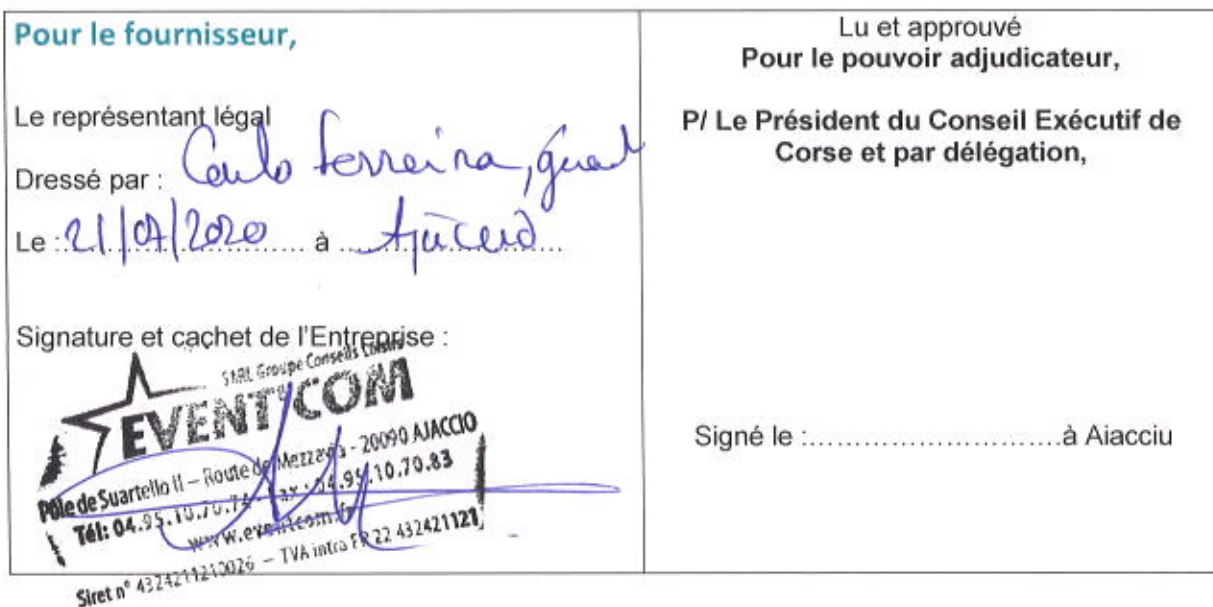 Pour le fournisseur,
Le représentant légal
Dressé par : Carlo Ferreira,
Le : 21/07/2020 à Ajaccio
Signature et cachet de l'Entreprise :
SARL Groupe Conseils Loisirs
EVENT'COM
Pôle de Suartello II – Route de Mezzavia - 20090 AJACCIO
Tél: 04.95.10.70.74 - Fax : 04.95.10.70.83
www.eventcom.fr
Siret n° 4324211210026 – TVA intra FR 22 432421121
Lu et approuvé
Pour le pouvoir adjudicateur,
P/ Le Président du Conseil Exécutif de
Corse et par délégation,
Signé le :..............................à Aiacciu